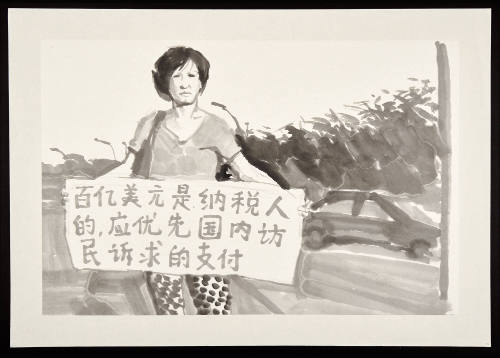 百亿美元是纳税人
的,应优先国内访
民诉求的支付